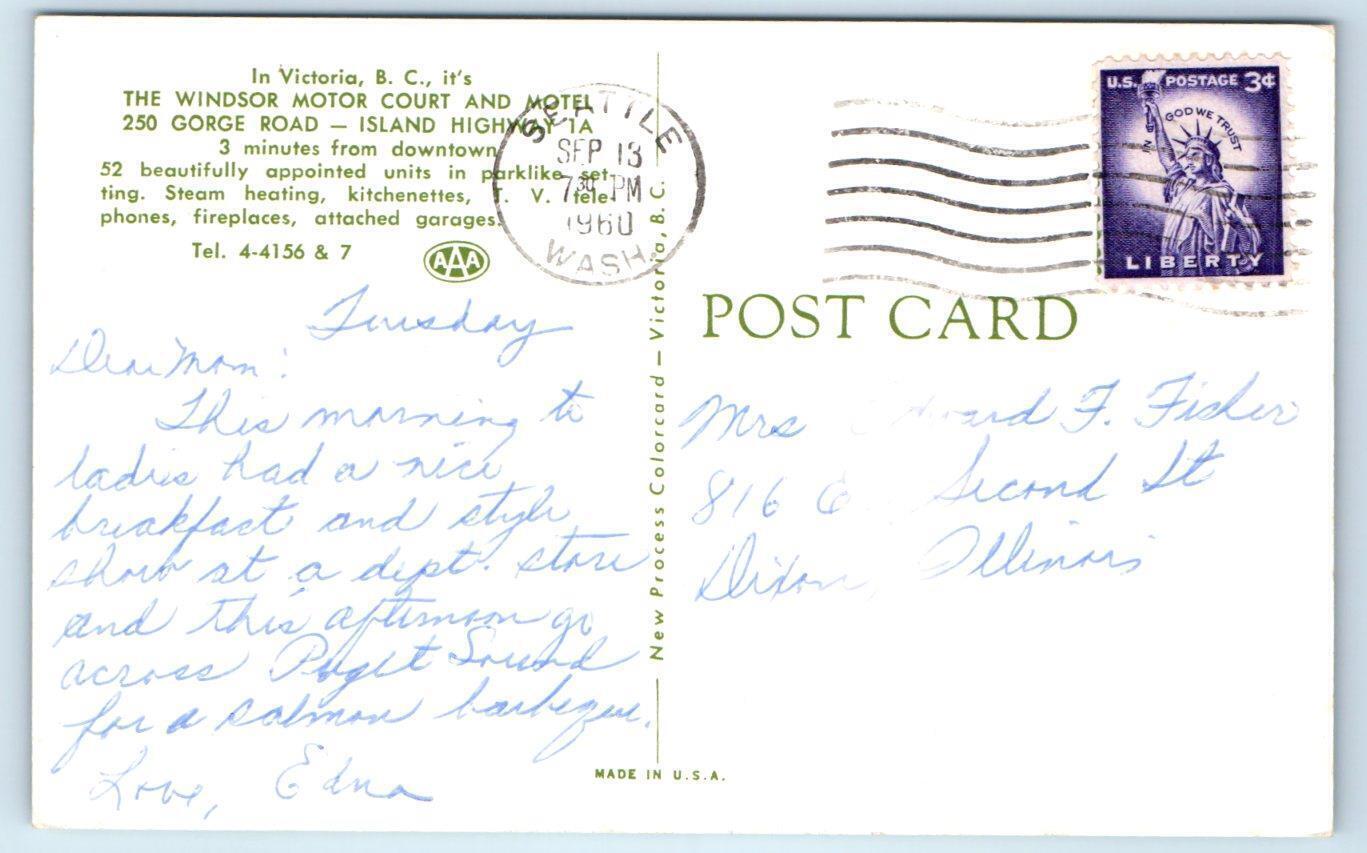 In Victoria, B. C., it's
THE WINDSOR MOTOR COURT AND MOTEL
250 GORGE ROAD — ISLAND HIGHWAY 1A
3 minutes from downtown
52 beautifully appointed units in parklike set-
ting. Steam heating, kitchenettes, T. V. tele-
phones, fireplaces, attached garages.
Tel. 4-4156 & 7
AAA
SEATTLE
SEP 13
7 30 PM
1960
WASH.
U.S. POSTAGE 3¢
IN GOD WE TRUST
LIBERTY
Tuesday
Dear Mom:
This morning to
ladies had a nice
breakfast and style
show at a dept. store
and this afternoon go
across Puget Sound
for a salmon barbeque.
Love, Edna
New Process Colorcard — Victoria, B. C.
MADE IN U.S.A.
POST CARD
Mrs Edward F. Fisher
816 E. Second St
Dixon, Illinois